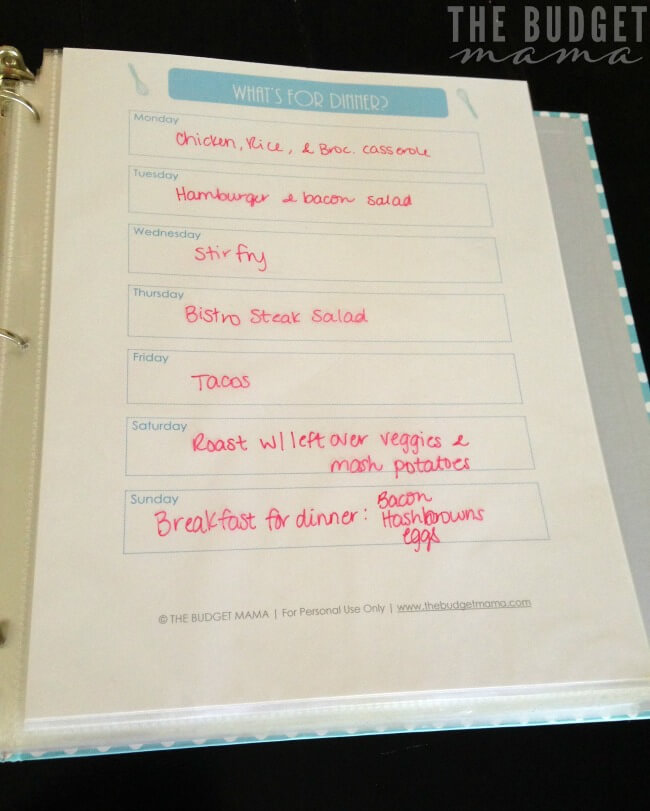 THE BUDGET
mama
WHAT'S FOR DINNER?
Monday
Chicken, Rice, & Broc. casserole
Tuesday
Hamburger & bacon salad
Wednesday
Stir fry
Thursday
Bistro Steak Salad
Friday
Tacos
Saturday
Roast w/ left over veggies &
mash potatoes
Sunday
Breakfast for dinner: Bacon
Hashbrowns
eggs
© THE BUDGET MAMA | For Personal Use Only | www.thebudgetmama.com